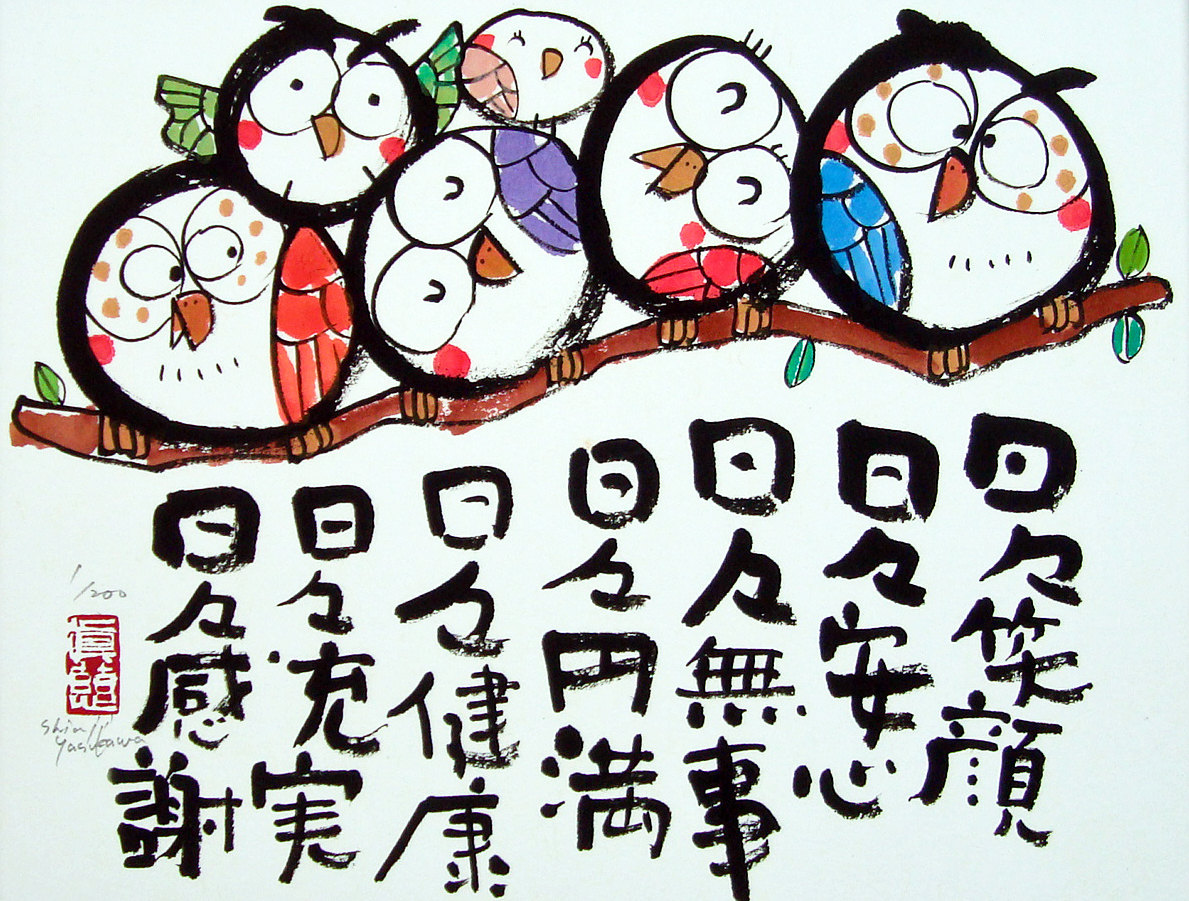 日々笑顔
日々安心
日々無事
日々円満
日々健康
日々充実
日々感謝
1/200
Shinji
Yasukawa